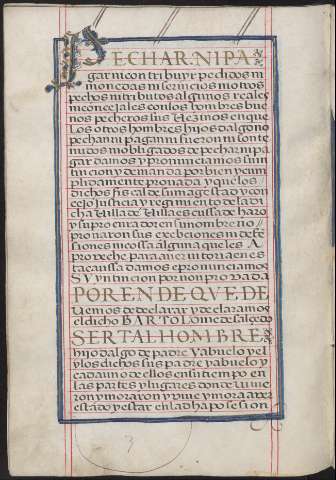 PECHAR.NI PA
gar ni contribuyr pechos ni
monedas ni serbicios ni otros
pechos ni tributos algunos reales
ni concejales con los hombres bue
nos pecheros sus vezinos en que
Los otros hombres hijos dalgo no
pechan ni pagan ni fueron ni son te
nidos ni obligados de pechar ni pa
gar damos y pronunciamos su in
tincion y demanda por bien y cum
plidamente probada y que los
dichos fiscal de su magestad y con
cejo Justicia y regimiento de la di
cha Villa de Villa escussa de haro
y su procurador en su nombre no
probaron sus exebciones ni defe
siones ni cossa alguna que les A
probeche para aver vitoria en es
ta caussa damos e pronunciamos
SU yntincion por non probada
POR ENDE QUE DE
Vemos de declarar y declaramos
el dicho BARTOLOme de salcedo
SER TAL HOMBRE
hijo dalgo de padre y abuelo y el
y los dichos sus padre y abuelo y
cada uno de ellos en su tiempo en
las partes y lugares donde vivie
ron y moraron y vive y mora aver
estado y estar en la dha posesion
3